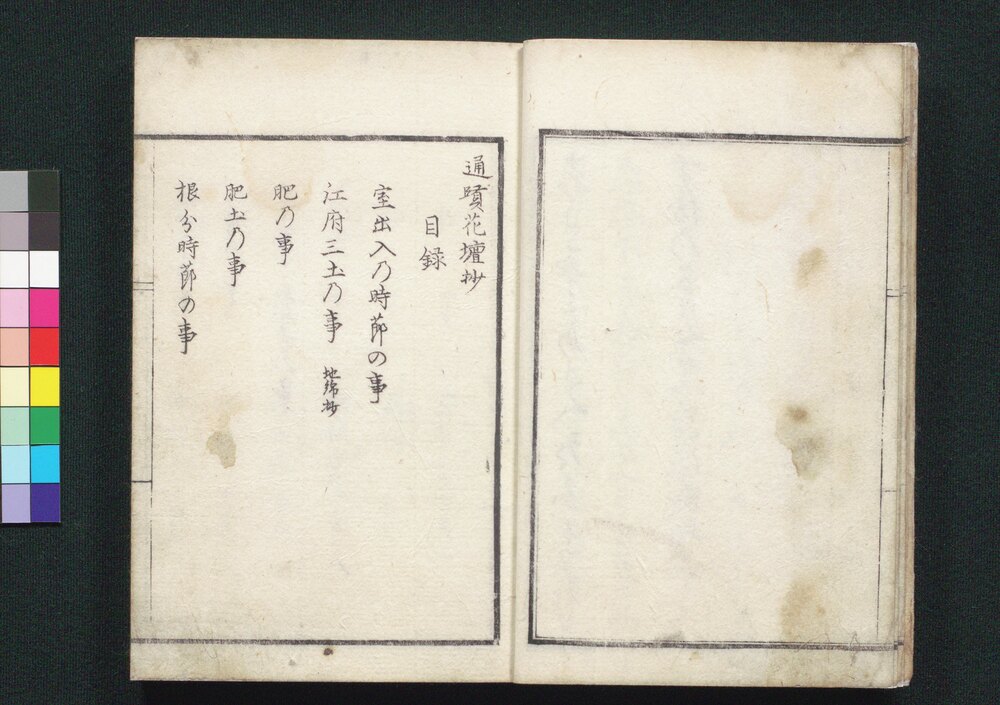 通賢花壇抄
目録
室出入乃時節の事
江府三土乃事 地錦抄
肥乃事
肥土乃事
根分時節の事